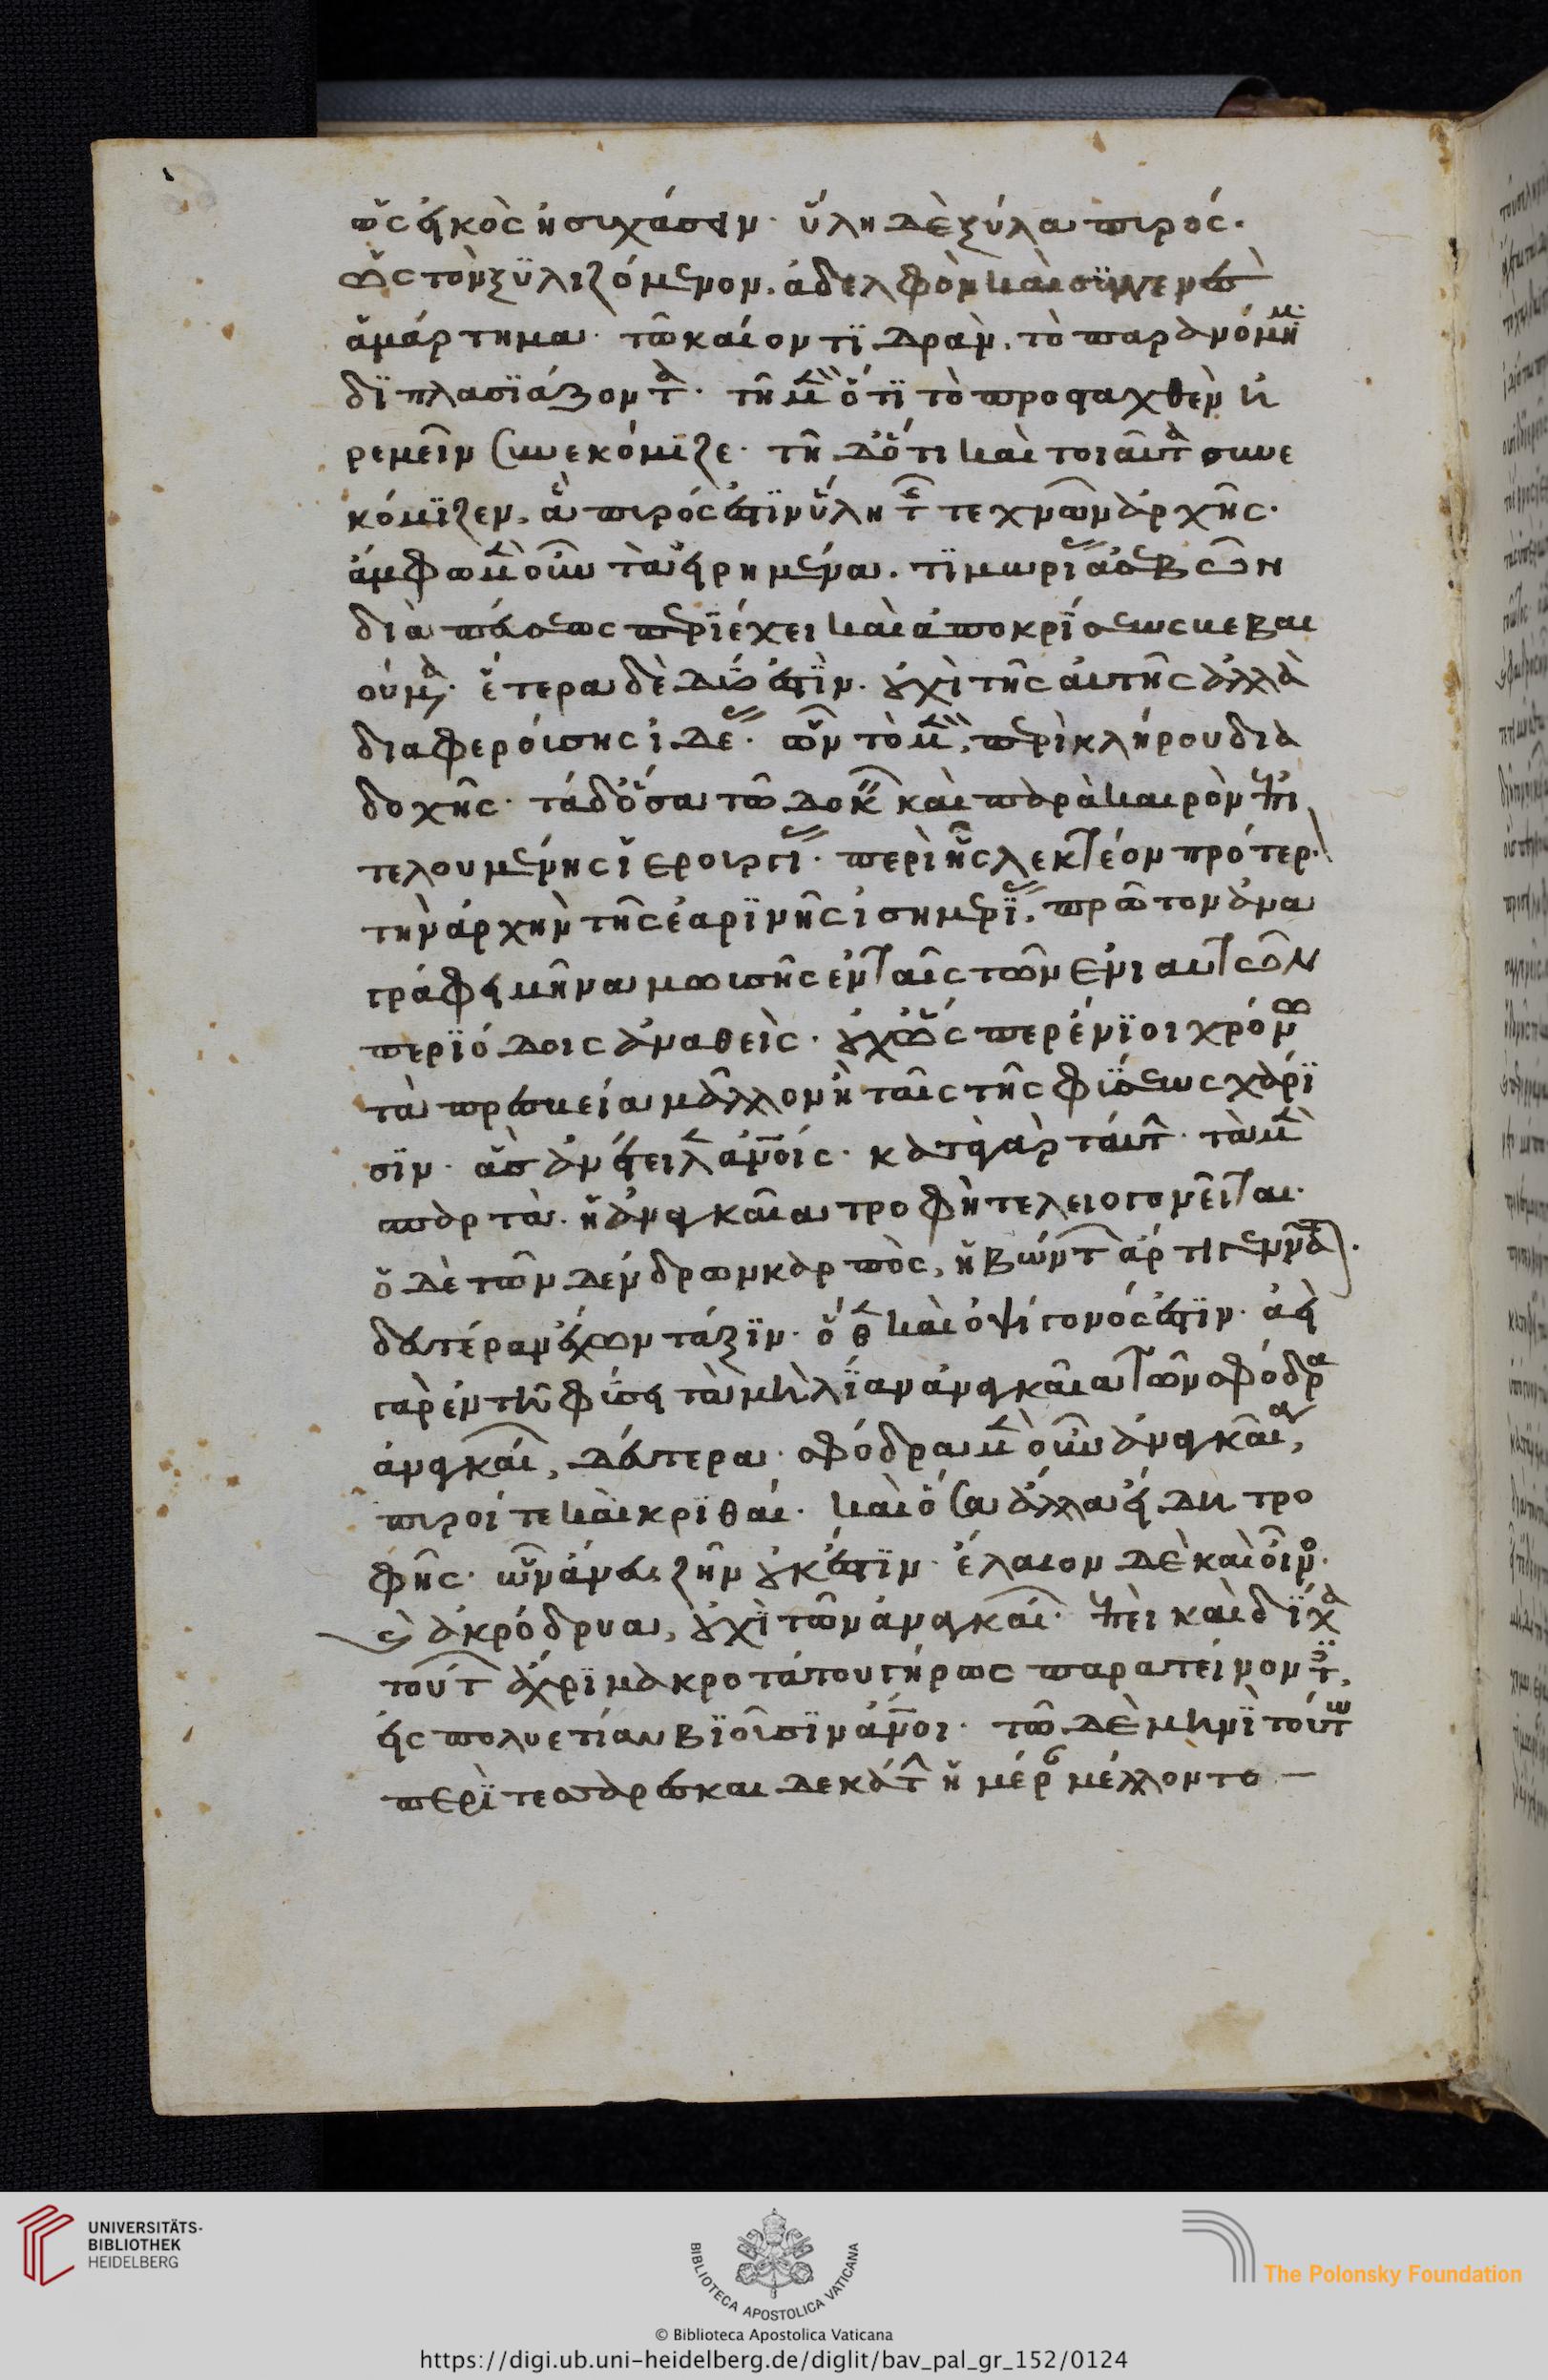 ὡς εἰκὸς ἡσυχάσειν· ὕλη δὲ ξύλα πυρός·
ὡς τὸν ξυλιζόμενον. ἀδελφὸν καὶ συγγενὲς
ἁμάρτημα· τῶ καίοντι δρᾶν. τὸ παρανόμημα
διπλασιάζοντα· τῆ μὲν ὅτι τὸ προσταχθὲν ἠ
ρεμεῖν συνεκόμιζε· τῆ δ' ὅτι καὶ τοιαῦτα συνε
κόμιζεν, ἃ πυρός ἐστιν ὕλη τῆς τεχνῶν ἀρχῆς·
ἄμφω μὲν οὖν τὰ εἰρημένα. τιμωρίας ἀσεβῶν
διὰ πεύσεως περιέχει καὶ ἀποκρίσεως βεβαι
ούμενα· ἕτερα δὲ δύο ἐστὶν. οὐχὶ τῆς αὐτῆς ἀλλὰ
διαφερούσης ἰδέας· ὧν τὸ μὲν, περὶ κλήρου δια
δοχῆς· τὰ δ' ὅσα τῶ δοκεῖν καὶ παρὰ καιρὸν ἐπι
τελουμένης ἱερουργίας· περὶ ἧς λεκτέον πρότερον·
τὴν ἀρχὴν τῆς ἐαρινῆς ἰσημερίας. πρῶτον ἀνα
γράφει μῆνα μωυσῆς ἐν ταῖς τῶν ἐνιαυτῶν
περιόδοις ἀναθεὶς· οὐχ ὥσπερ ἔνιοι χρόνω
τὰ πρεσβεία μᾶλλον ἢ ταῖς τῆς φύσεως χάρι
σιν· ἃς ἀνέτειλεν ἀνθρώποις· κατὰ γὰρ ταύτην· τὰ μὲν
σπαρτὰ. ἡ ἀναγκαῖα τροφὴ τελειογονεῖται·
ὁ δὲ τῶν δένδρων καρπὸς, ἡβώντων ἄρτι γεννᾶται·
δευτέραν ἔχων τάξιν· ὅθεν καὶ ὀψίγονός ἐστιν· ἀεὶ
γὰρ ἐν τῆ φύσει τὰ μὴ λίαν ἀναγκαῖα τῶν σφόδρα
ἀναγκαίων, δεύτερα· σφόδρα μὲν οὖν ἀναγκαῖα,
πυροί τε καὶ κριθαί· καὶ ὅσα ἄλλα εἴδη τρο
φῆς· ὧν ἄνευ ζῆν οὐκ ἔστιν· ἔλαιον δὲ καὶ οἶνος·
καὶ ἀκρόδρυα, οὐχὶ τῶν ἀναγκαίων· ἐπεὶ καὶ δίχα
τούτων ἄχρι μακροτάτου γήρως παρατείνοντες,
εἰς πολυετίαν βιοῦσιν ἄνθρωποι· τῶ δὲ μηνὶ τούτω
περὶ τεσσαρεσκαιδεκάτην ἡμέραν μέλλοντος —
UNIVERSITÄTS-
BIBLIOTHEK
HEIDELBERG
BIBLIOTECA APOSTOLICA VATICANA
The Polonsky Foundation
© Biblioteca Apostolica Vaticana
https://digi.ub.uni-heidelberg.de/diglit/bav_pal_gr_152/0124